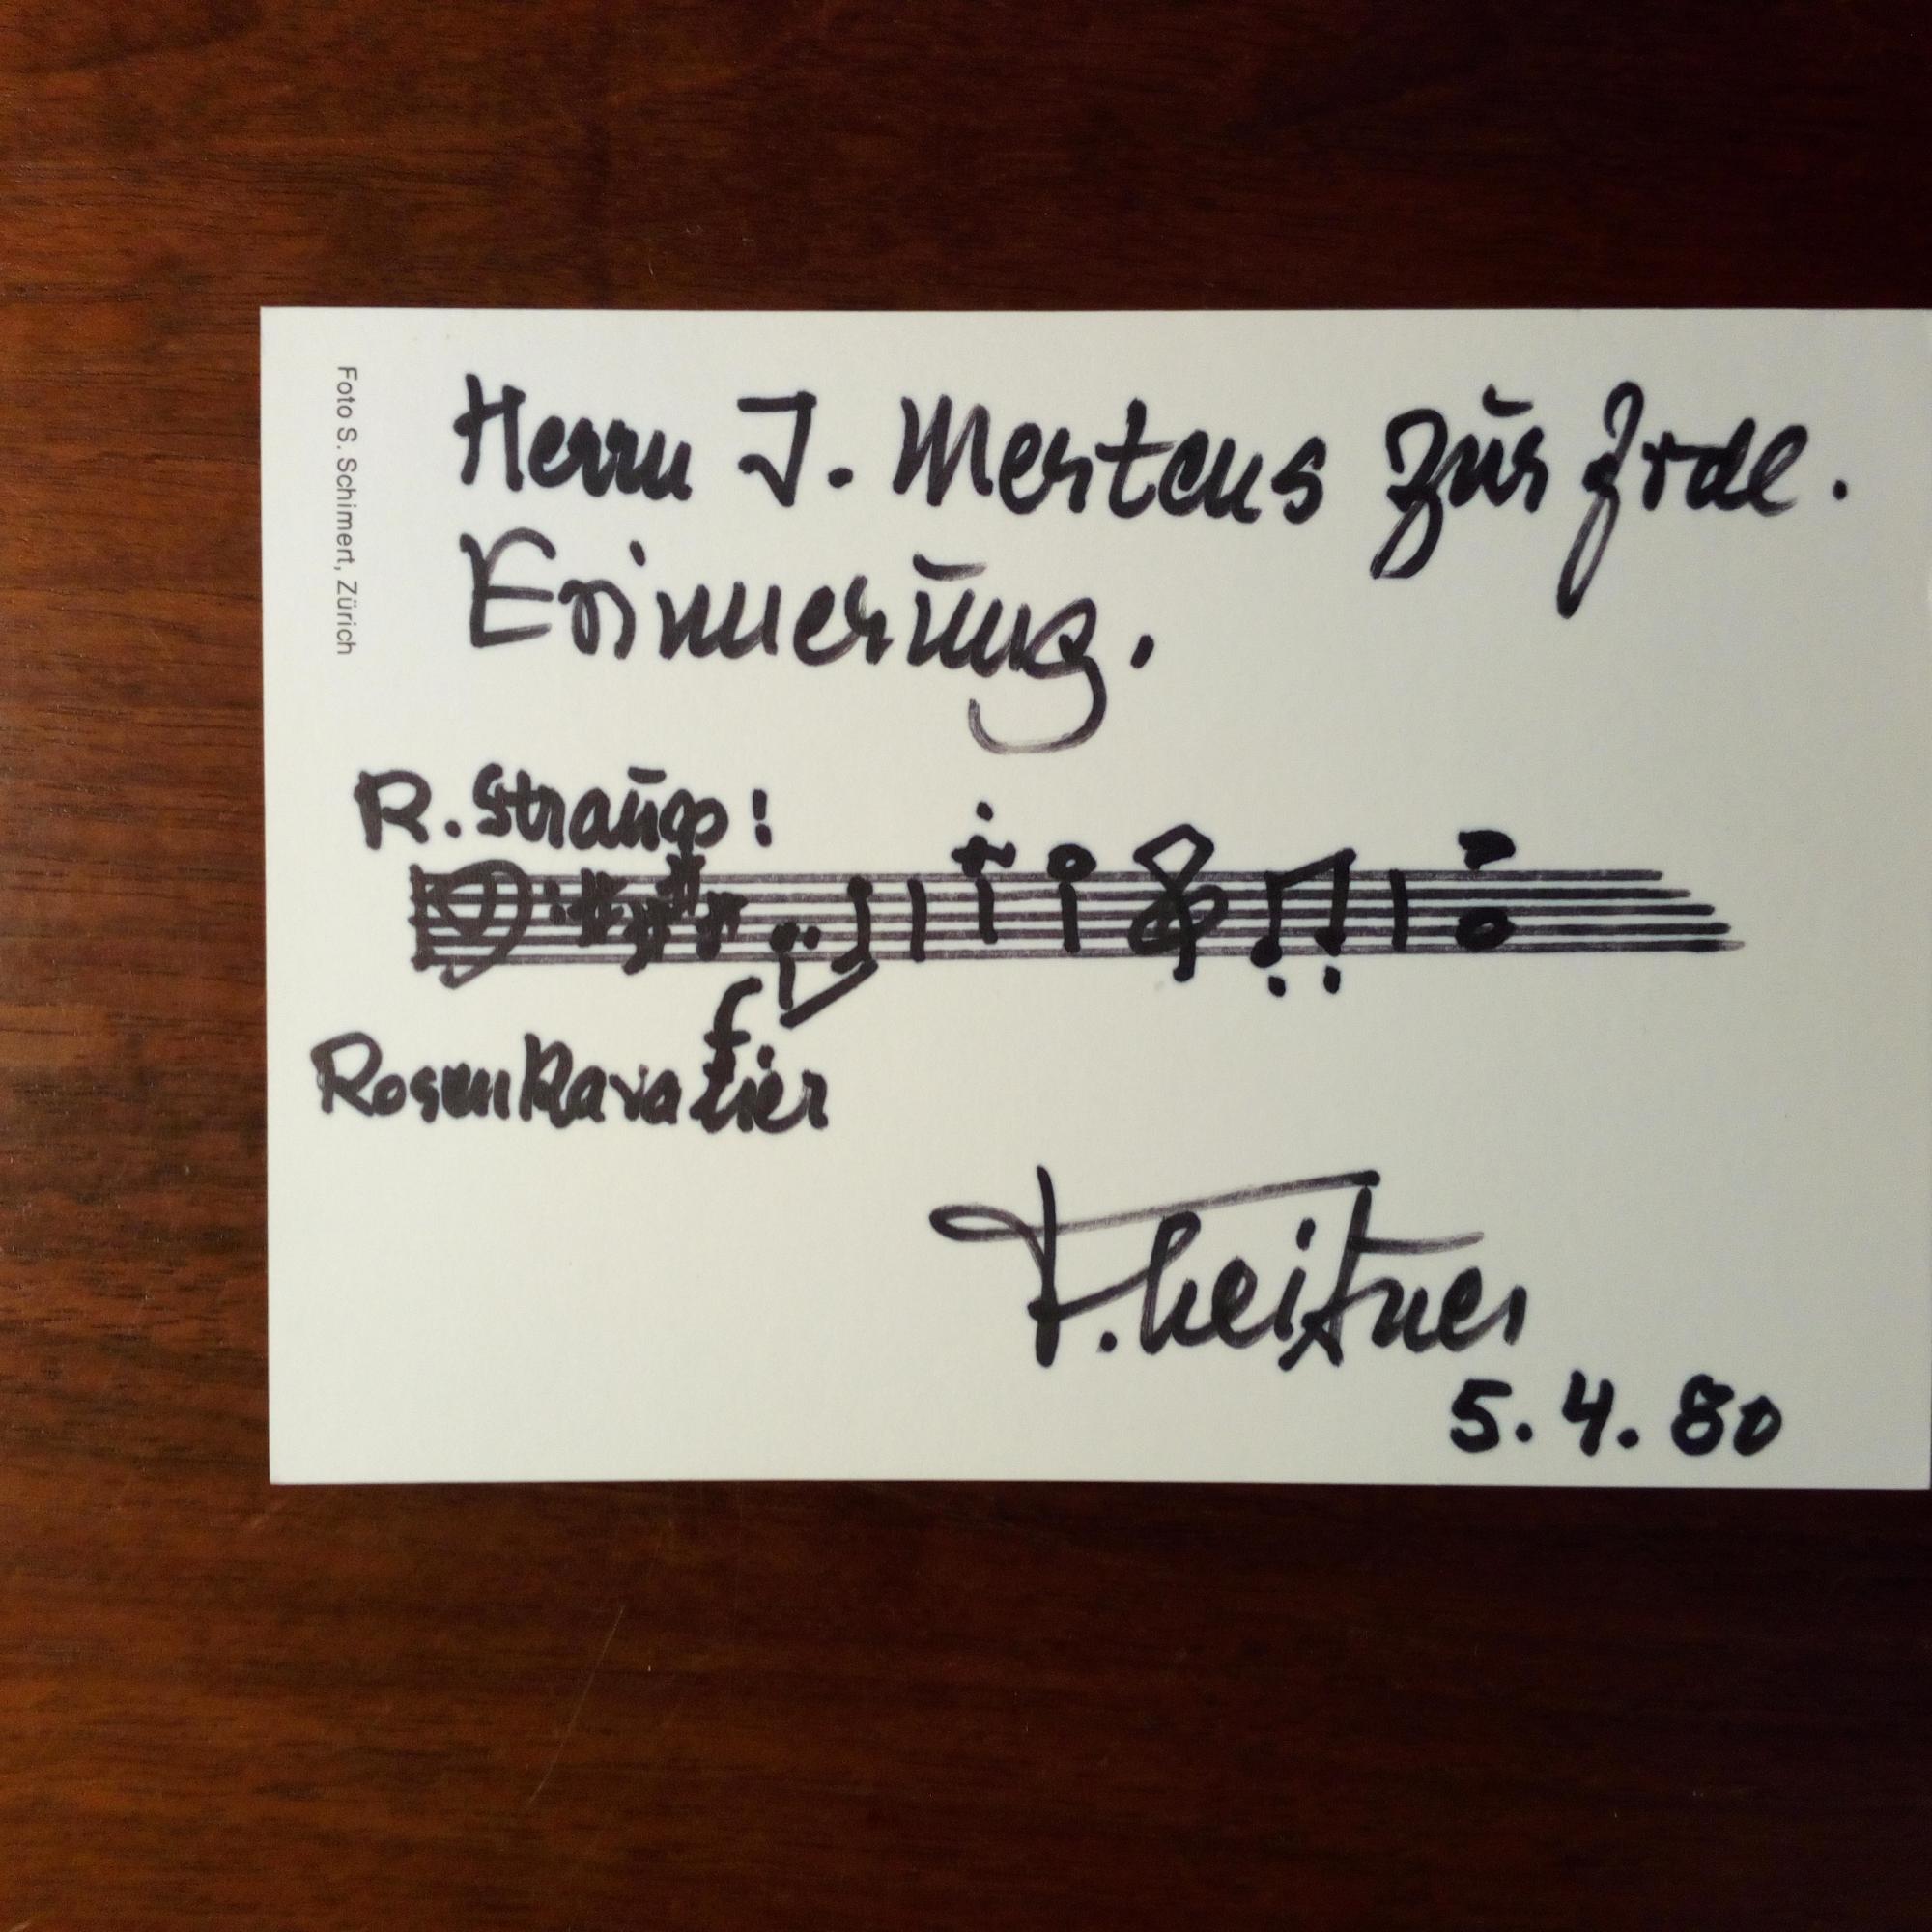 Foto S. Schimert, Zürich
Herrn J. Mertens zur frdl.
Erinnerung.
R. Strauss:
f
Rosenkavalier
F. Leitner
5.4.80